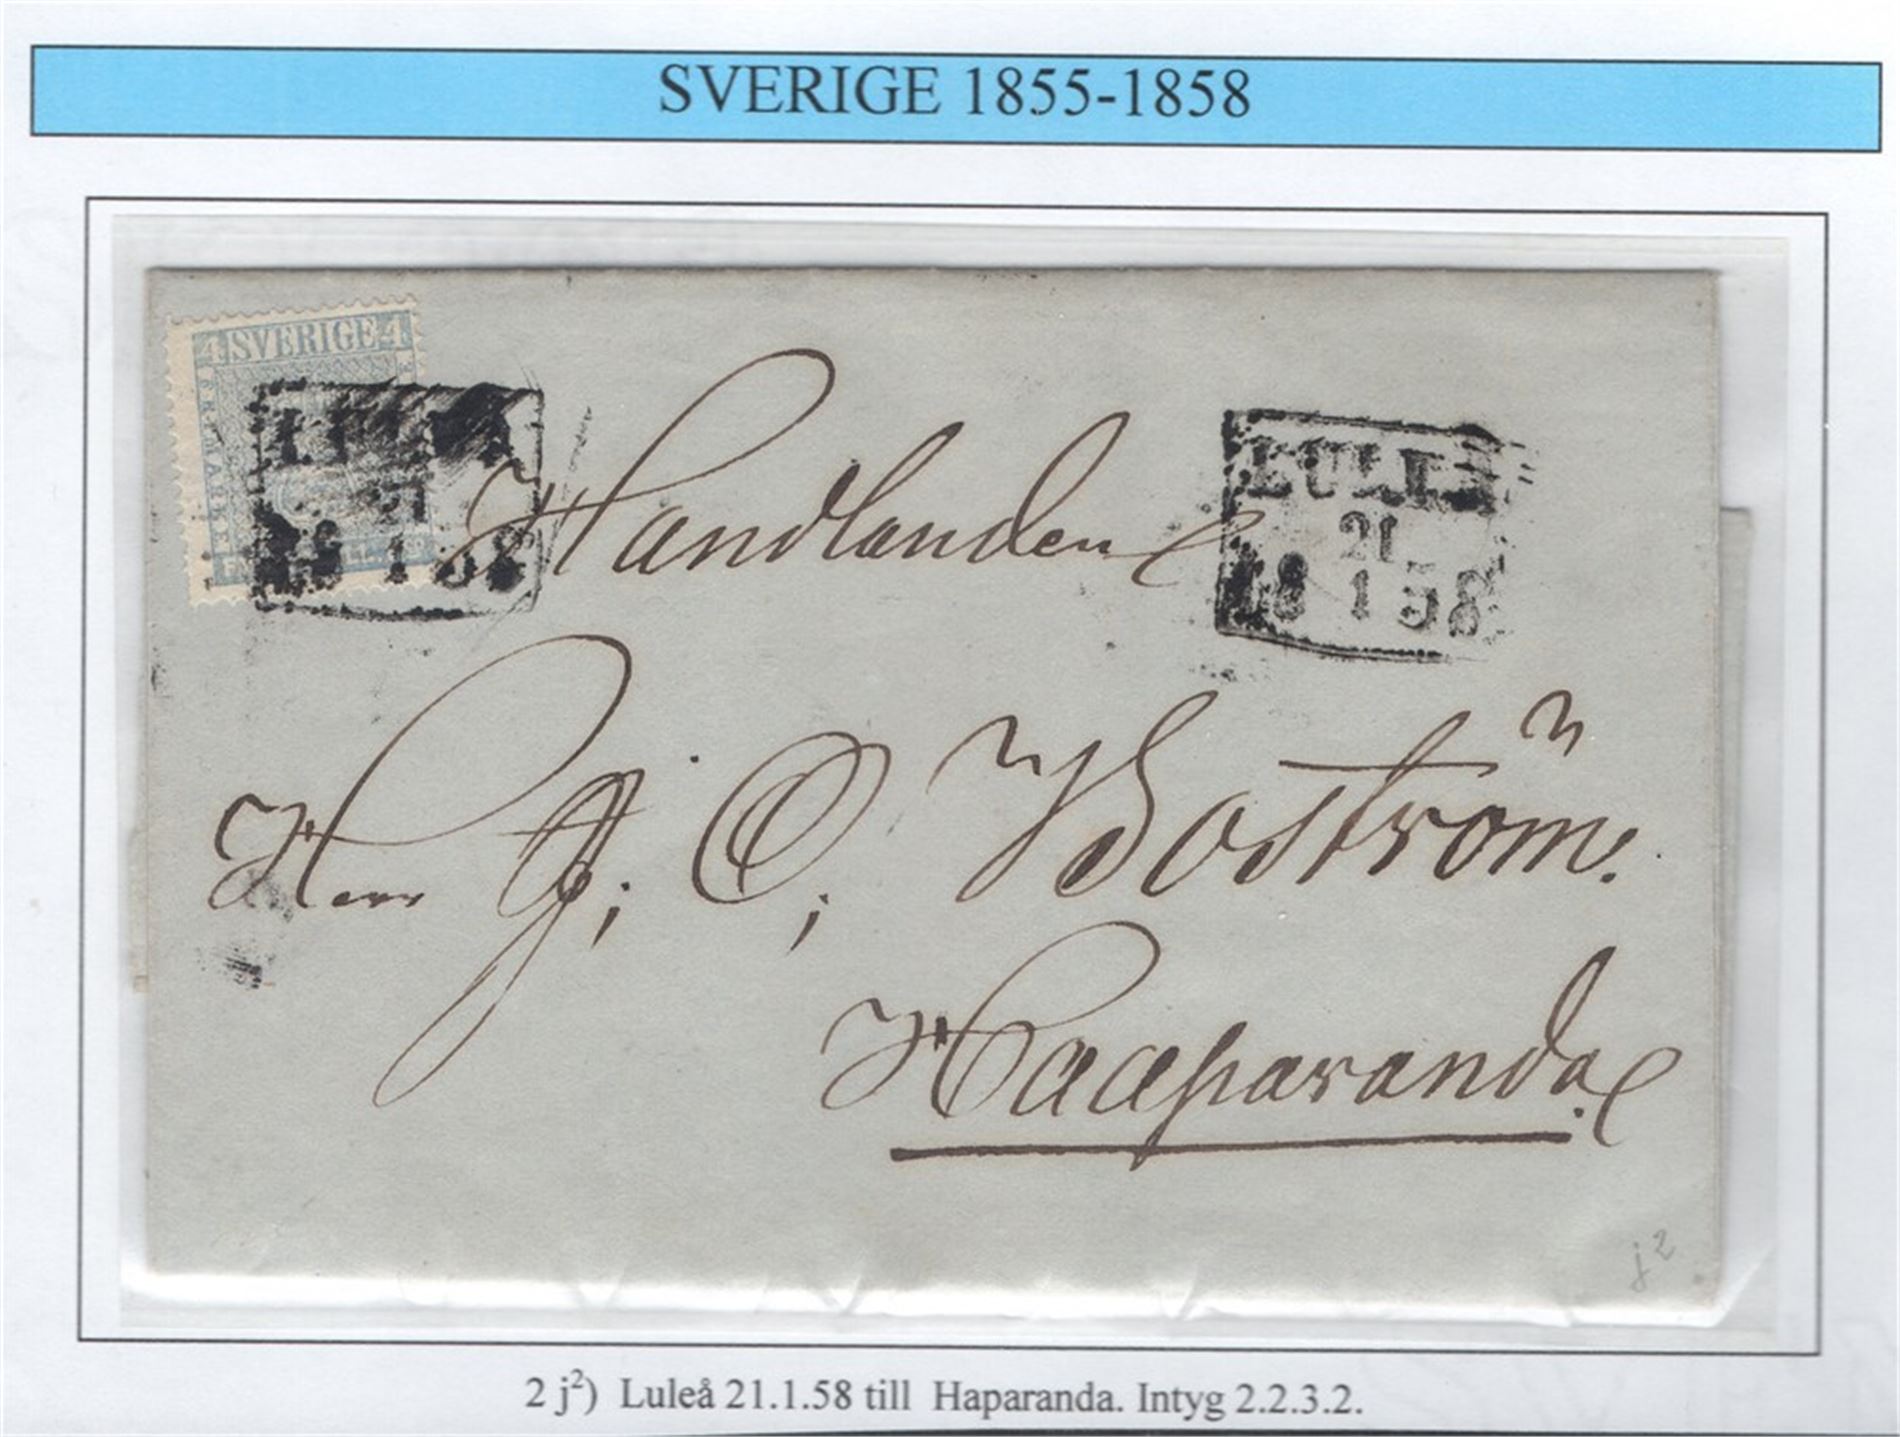 SVERIGE 1855-1858
4 SVERIGE 4
LULEÅ
21
18 1 58
LULEÅ
21
18 1 58
Handlanden
Herr J. O. Boström.
Haaparanda
j 2
2 j²) Luleå 21.1.58 till Haparanda. Intyg 2.2.3.2.